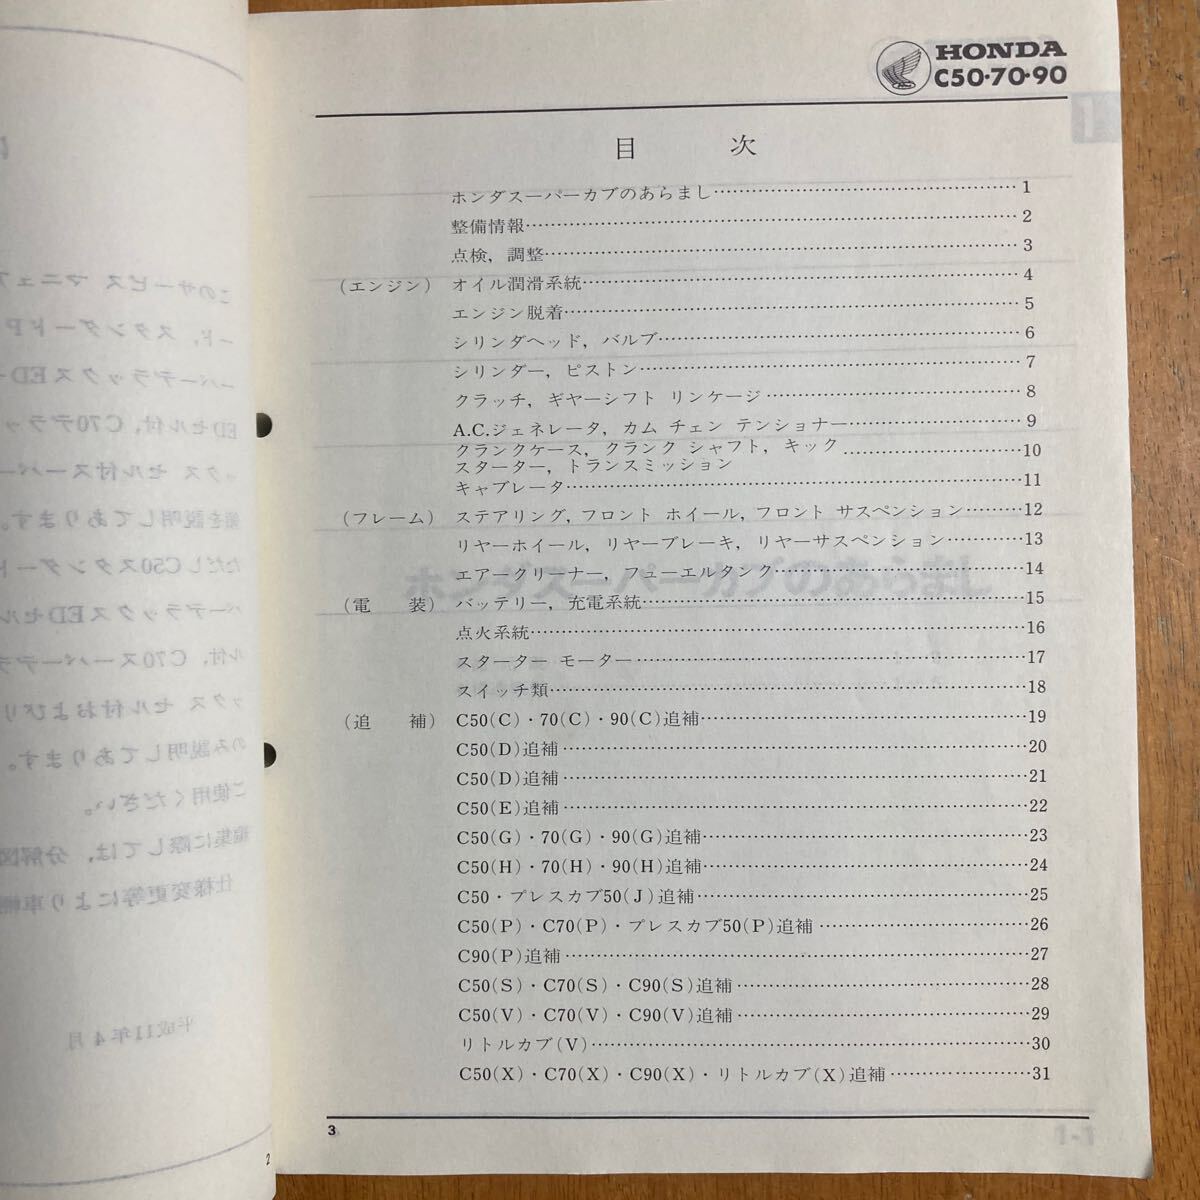 HONDA
C50·70·90
目 次
ホンダスーパーカブのあらまし……………1
整備情報……………2
点検，調整……………3
(エンジン) オイル潤滑系統……………4
エンジン脱着……………5
シリンダヘッド，バルブ……………6
シリンダー，ピストン……………7
クラッチ，ギヤーシフト リンケージ……………8
A.C.ジェネレータ，カム チェン テンショナー……………9
クランクケース，クランク シャフト，キック
スターター，トランスミッション……………10
キャブレータ……………11
(フレーム) ステアリング，フロント ホイール，フロント サスペンション………12
リヤーホイール，リヤーブレーキ，リヤーサスペンション…………13
エアークリーナー，フューエルタンク……………14
(電 装) バッテリー，充電系統……………15
点火系統……………16
スターター モーター……………17
スイッチ類……………18
(追 補) C50(C)・70(C)・90(C)追補……………19
C50(D)追補……………20
C50(D)追補……………21
C50(E)追補……………22
C50(G)・70(G)・90(G)追補……………23
C50(H)・70(H)・90(H)追補……………24
C50・プレスカブ50(J)追補……………25
C50(P)・C70(P)・プレスカブ50(P)追補……………26
C90(P)追補……………27
C50(S)・C70(S)・C90(S)追補……………28
C50(V)・C70(V)・C90(V)追補……………29
リトルカブ(V)……………30
C50(X)・C70(X)・C90(X)・リトルカブ(X)追補……………31
3
2